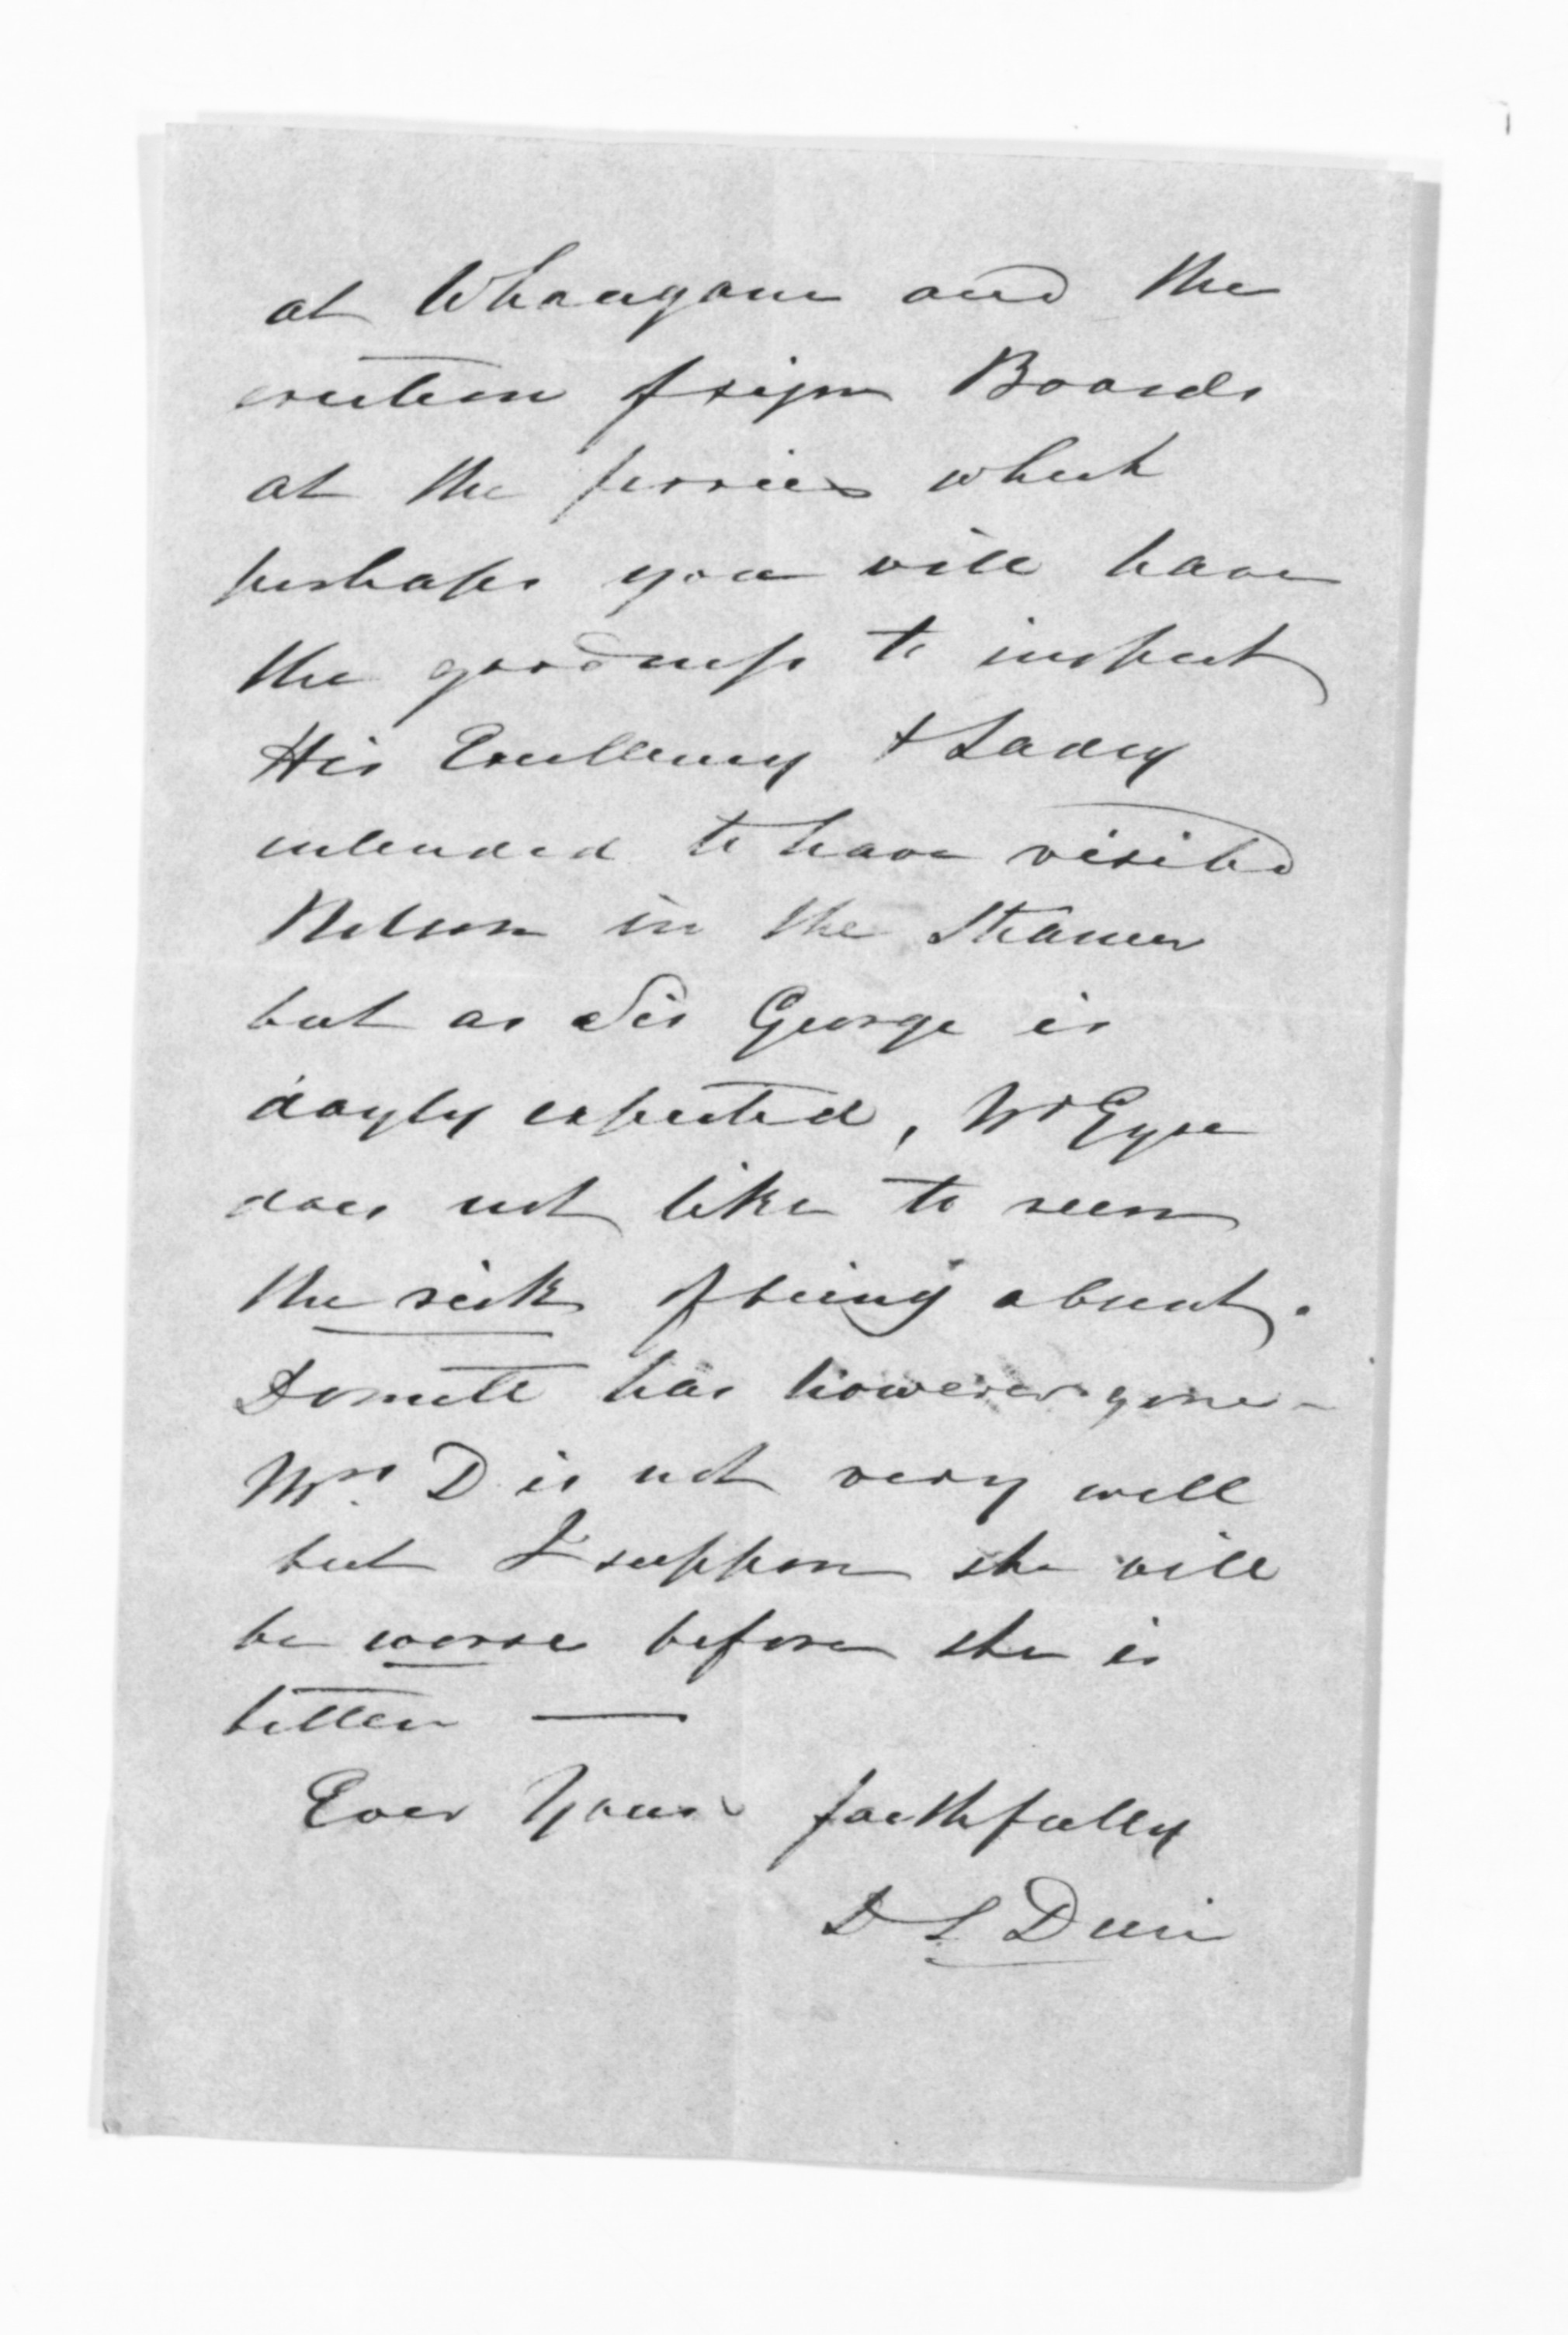 at Whanganu and the
erection of sign Boards
at the ferries which
perhaps you will have
the goodness to inspect
His Excellency & Lady
intended to have visited
Nelson in the Steamer
but as Sir George is
dayly expected, Mr Eyre
does not like to seem
the risk of being absent.
Domett has however gone -
Mrs. D is not very well
but I suppose she will
be worse before she is
better —
Ever Yours faithfully